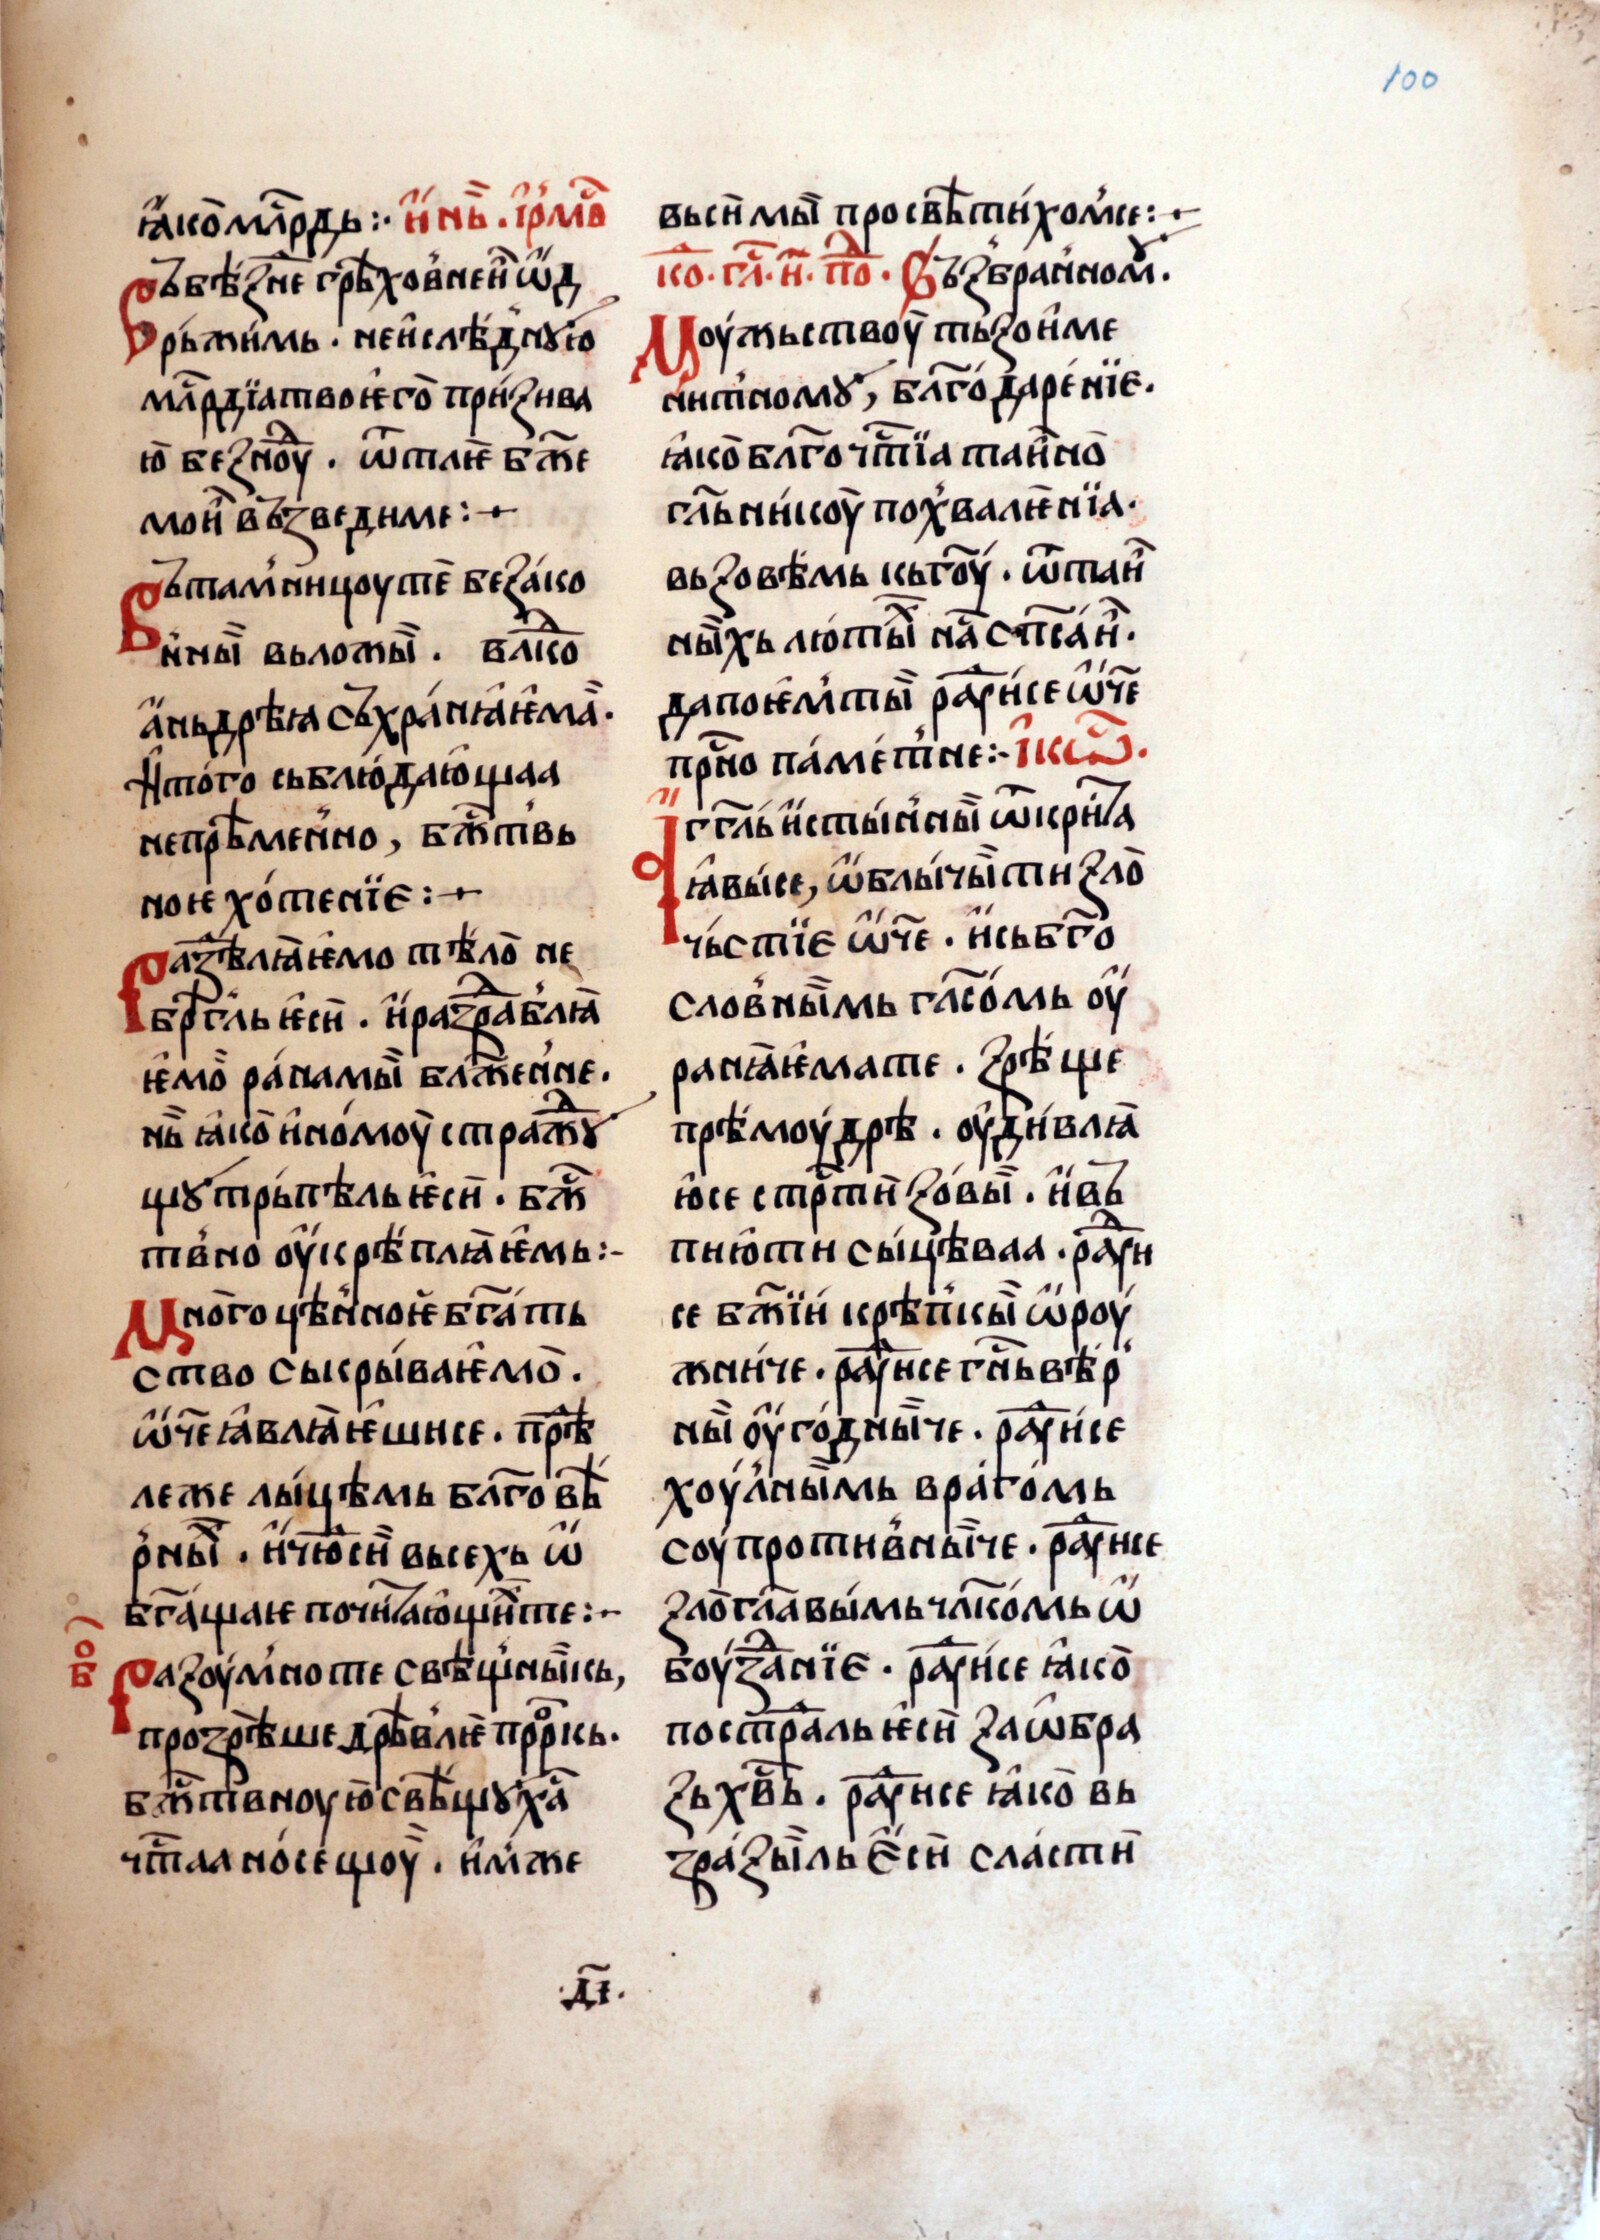 100
ꙗ҆ко̀ млⷭ҇рдь:· и҆ нь҃ . і҆рмѡⷭ
Въ бѣзⷣнѣ грѣхо́внеи ѡ҆д
рьжи́мь . неислѣ́днꙋю
млⷭ҇рдїа твоѥго̀ при́зива
ю̀ безⷣноу . ѿ тлѥ̀ бж҃е
мо́и възведи ме:·
Въ таи́нницоу тѐ беза́ко
н́ны̏ вьложы̏ . влⷣко
а҆ньдрѣꙗ съхра́нꙗѥма̏ .
И то́го сьблю́дающаа
непрѣме́нно , бжⷭ҇твь
ноѥ хо́тенїе:·
Разⷣѣлꙗѥмо тѣло̀ не
брѣгль ѥси̏ . и҆ раздраблꙗ
ѥмо̀ ра́намы̏ блаже́нне .
нь̏ ꙗ҆ко̀ и҆но́моу̀ стражⷣꙋ
щꙋ трьпѣль ѥси̏ . бжⷭ
твно оу҆крѣплꙗѥмь:·
Мно̀гоцѣ́нноѥ̀ бга́ть
ство сыкры́ваѥмо̀ .
ѡ҆ч҃е ꙗ҆влꙗѥши се . прѣⷣ
леже лы́цѣмь блгⷭ҇овѣ
рны̏ . и҆ чюⷣси̏ высехь ѡ҆
бга́щаѥ почитⷭ҇ающи̏ те:·
бо҃
Разоу́мно те свѣщ́ны̏кь ,
прозрѣ́вше дрѣ́влѥ прⷪ҇ркь .
бжⷭ҇твноую̀ свѣщꙋ хⷭ҇а
чтⷭ҇аа но́се́щоу̏ . и҆мже
вьси̏ мы̏ просвѣти́хом́се:·
ко . гл҃ . и҃ . поⷣ . Възбра́нном̀ꙋ .
Моу́жьствоу̀ тьзоиме
ни́тномꙋ , блго҃даре́нїе .
ꙗ҆ко̀ блгⷭ҇очтⷭ҇їа таи̏но
гл҃ьни́коу̀ похвалѥ̀нїа .
вьзовѣ́мь кь гоⷭ҇у . ѿ таи̏
ны̏хь лю́ты̏ нⷭ҇а сп҃са́и̏ .
да поѥ́мты̏ раⷣꙋи́се ѡ҆ч҃е
прⷭ҇но па́ме́тне:· і҆кѡⷭ .
Аг҃гль и҆сты́нны̏ ѿкри́тⷭ҇а
ꙗ҆вы́се , ѡ҆блы́чы̏ти зло̀
чь́стїе ѡ҆ч҃е . и҆ сь бг҃о
сло́вны̏мь глⷭ҇о́мь оу҆
ранꙗѥма те . зрѣ́ще
прѣ́моу́дрѣ . оу҆ди́влꙗ
ю҆се стрⷭ҇ти̏ зо́вы̏ . и҆ въ
пию҆ти сы́цѣваа . раⷣꙋи
се бж҃їи крѣ́пкы̏ ѡ҆роу́
жни́че . раⷣꙋисе гнⷭ҇ь вѣ́р
ны̏ оу҆го́дны̏че . раⷣꙋи́се
хоу́лны̏мь врагоⷨ́ь
соупроти́вны̏че . раⷣꙋисе
зло̀гла́вымь чл҃ко́мь ѡ҆
боу́зⷣанїе . раⷣꙋи́се ꙗ҆ко̀
постраⷣль ѥси̏ за ѡ҆бра
зь хвⷭ҇ь . раⷣꙋисе ꙗ҆ко̀ вь
зра́зы̏ль є҆си̏ сла́сти̏
.дı҃.